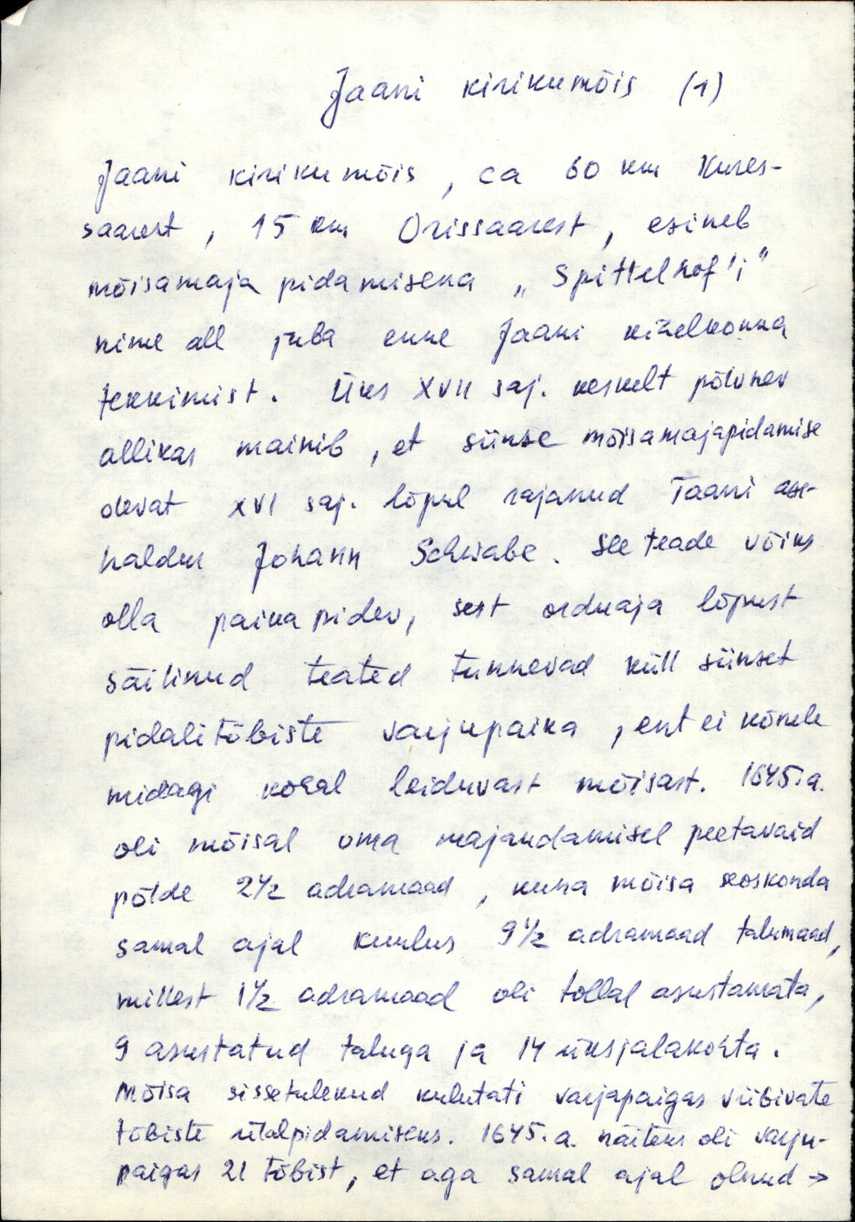 Jaani kirikumõis (1)
Jaani kirikumõis, ca 60 km Kures-
saarest, 15 km Orissaarest, esineb
mõisamaja pidamisena „Spittelhof'i"
nime all juba enne Jaani kihelkonna
tekkimist. Üks XVII saj. keskelt põlvnev
allikas mainib, et siinse mõisamajapidamise
olevat XVI saj. lõpul rajanud Taani ase-
haldur Johann Schwabe. See teade võiks
olla paikapidev, sest orduaja lõpust
säilinud teated tunnevad küll siinset
pidalitõbiste varjupaika, ent ei kõnele
midagi kohal leiduvast mõisast. 1645.a.
oli mõisal oma majandamisel peetavaid
põlde 2½ adramaad, kuna mõisa kooskonda
samal ajal kuulus 9½ adramaad talumaad,
millest 1½ adramaad oli tollal asustamata,
9 asustatud taluga ja 14 üksjalakohta.
Mõisa sissetulekud kulutati varjapaigas viibivate
tõbiste ülalpidamiseks. 1645.a. näiteks oli varju-
paigas 21 tõbist, et aga samal ajal olnud →